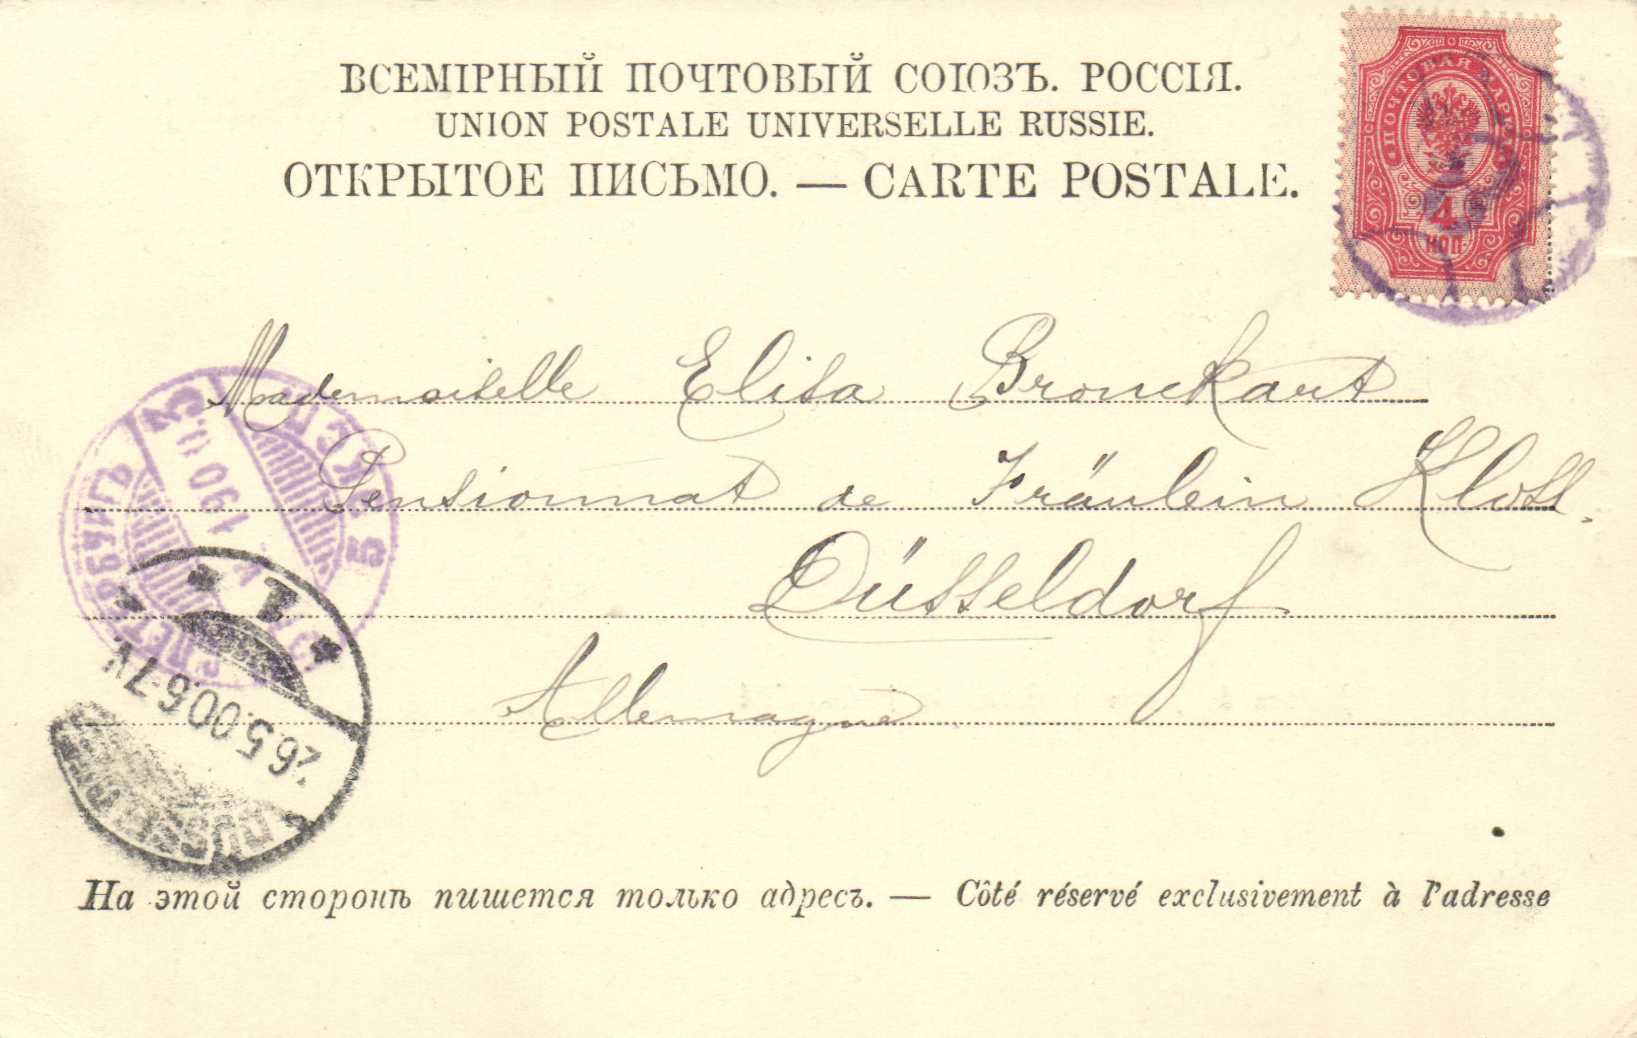 ВСЕМІРНЫЙ ПОЧТОВЫЙ СОЮЗЪ. РОССІЯ.
UNION POSTALE UNIVERSELLE RUSSIE.
ОТКРЫТОЕ ПИСЬМО. — CARTE POSTALE.
ПОЧТОВАЯ МАРКА
4
КОП
Mademoiselle Elisa Bronckart
Pensionnat de Fräulein
Düsseldorf
Allemagne
26.5.00.6-7N.
На этой сторонѣ пишется только адресъ. — Côté réservé exclusivement à l'adresse